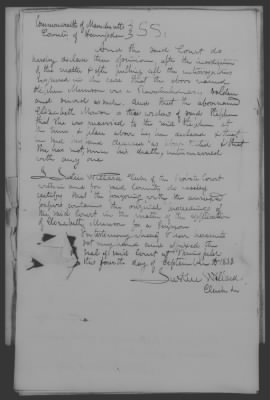 Commonwealth of Massachusetts } SS:
County of Hampden
And the said Court do
hereby declare their opinion, after the investigation
of the matter & after putting all the interrogatories
required in the case that the above named
Stephen was a Revolutionary soldier
and served as such. And that the aforesaid
Elizabeth is the widow of said Stephen
that she was married to the said Stephen at
the time & place above by her declared & that
he died &
she has not, since his death, intermarried
with any one
I Justice Willard Clerk of the Probate Court
within and for said County do hereby
certify that the foregoing with the annexed
papers contains the original proceedings of
the said Court in the matter of the application
of Elizabeth for a pension
In testimony whereof I have hereunto
set my hand and affixed the
seal of said Court at Springfield
this fourth day of September AD 1838
Justice Willard
Clerk